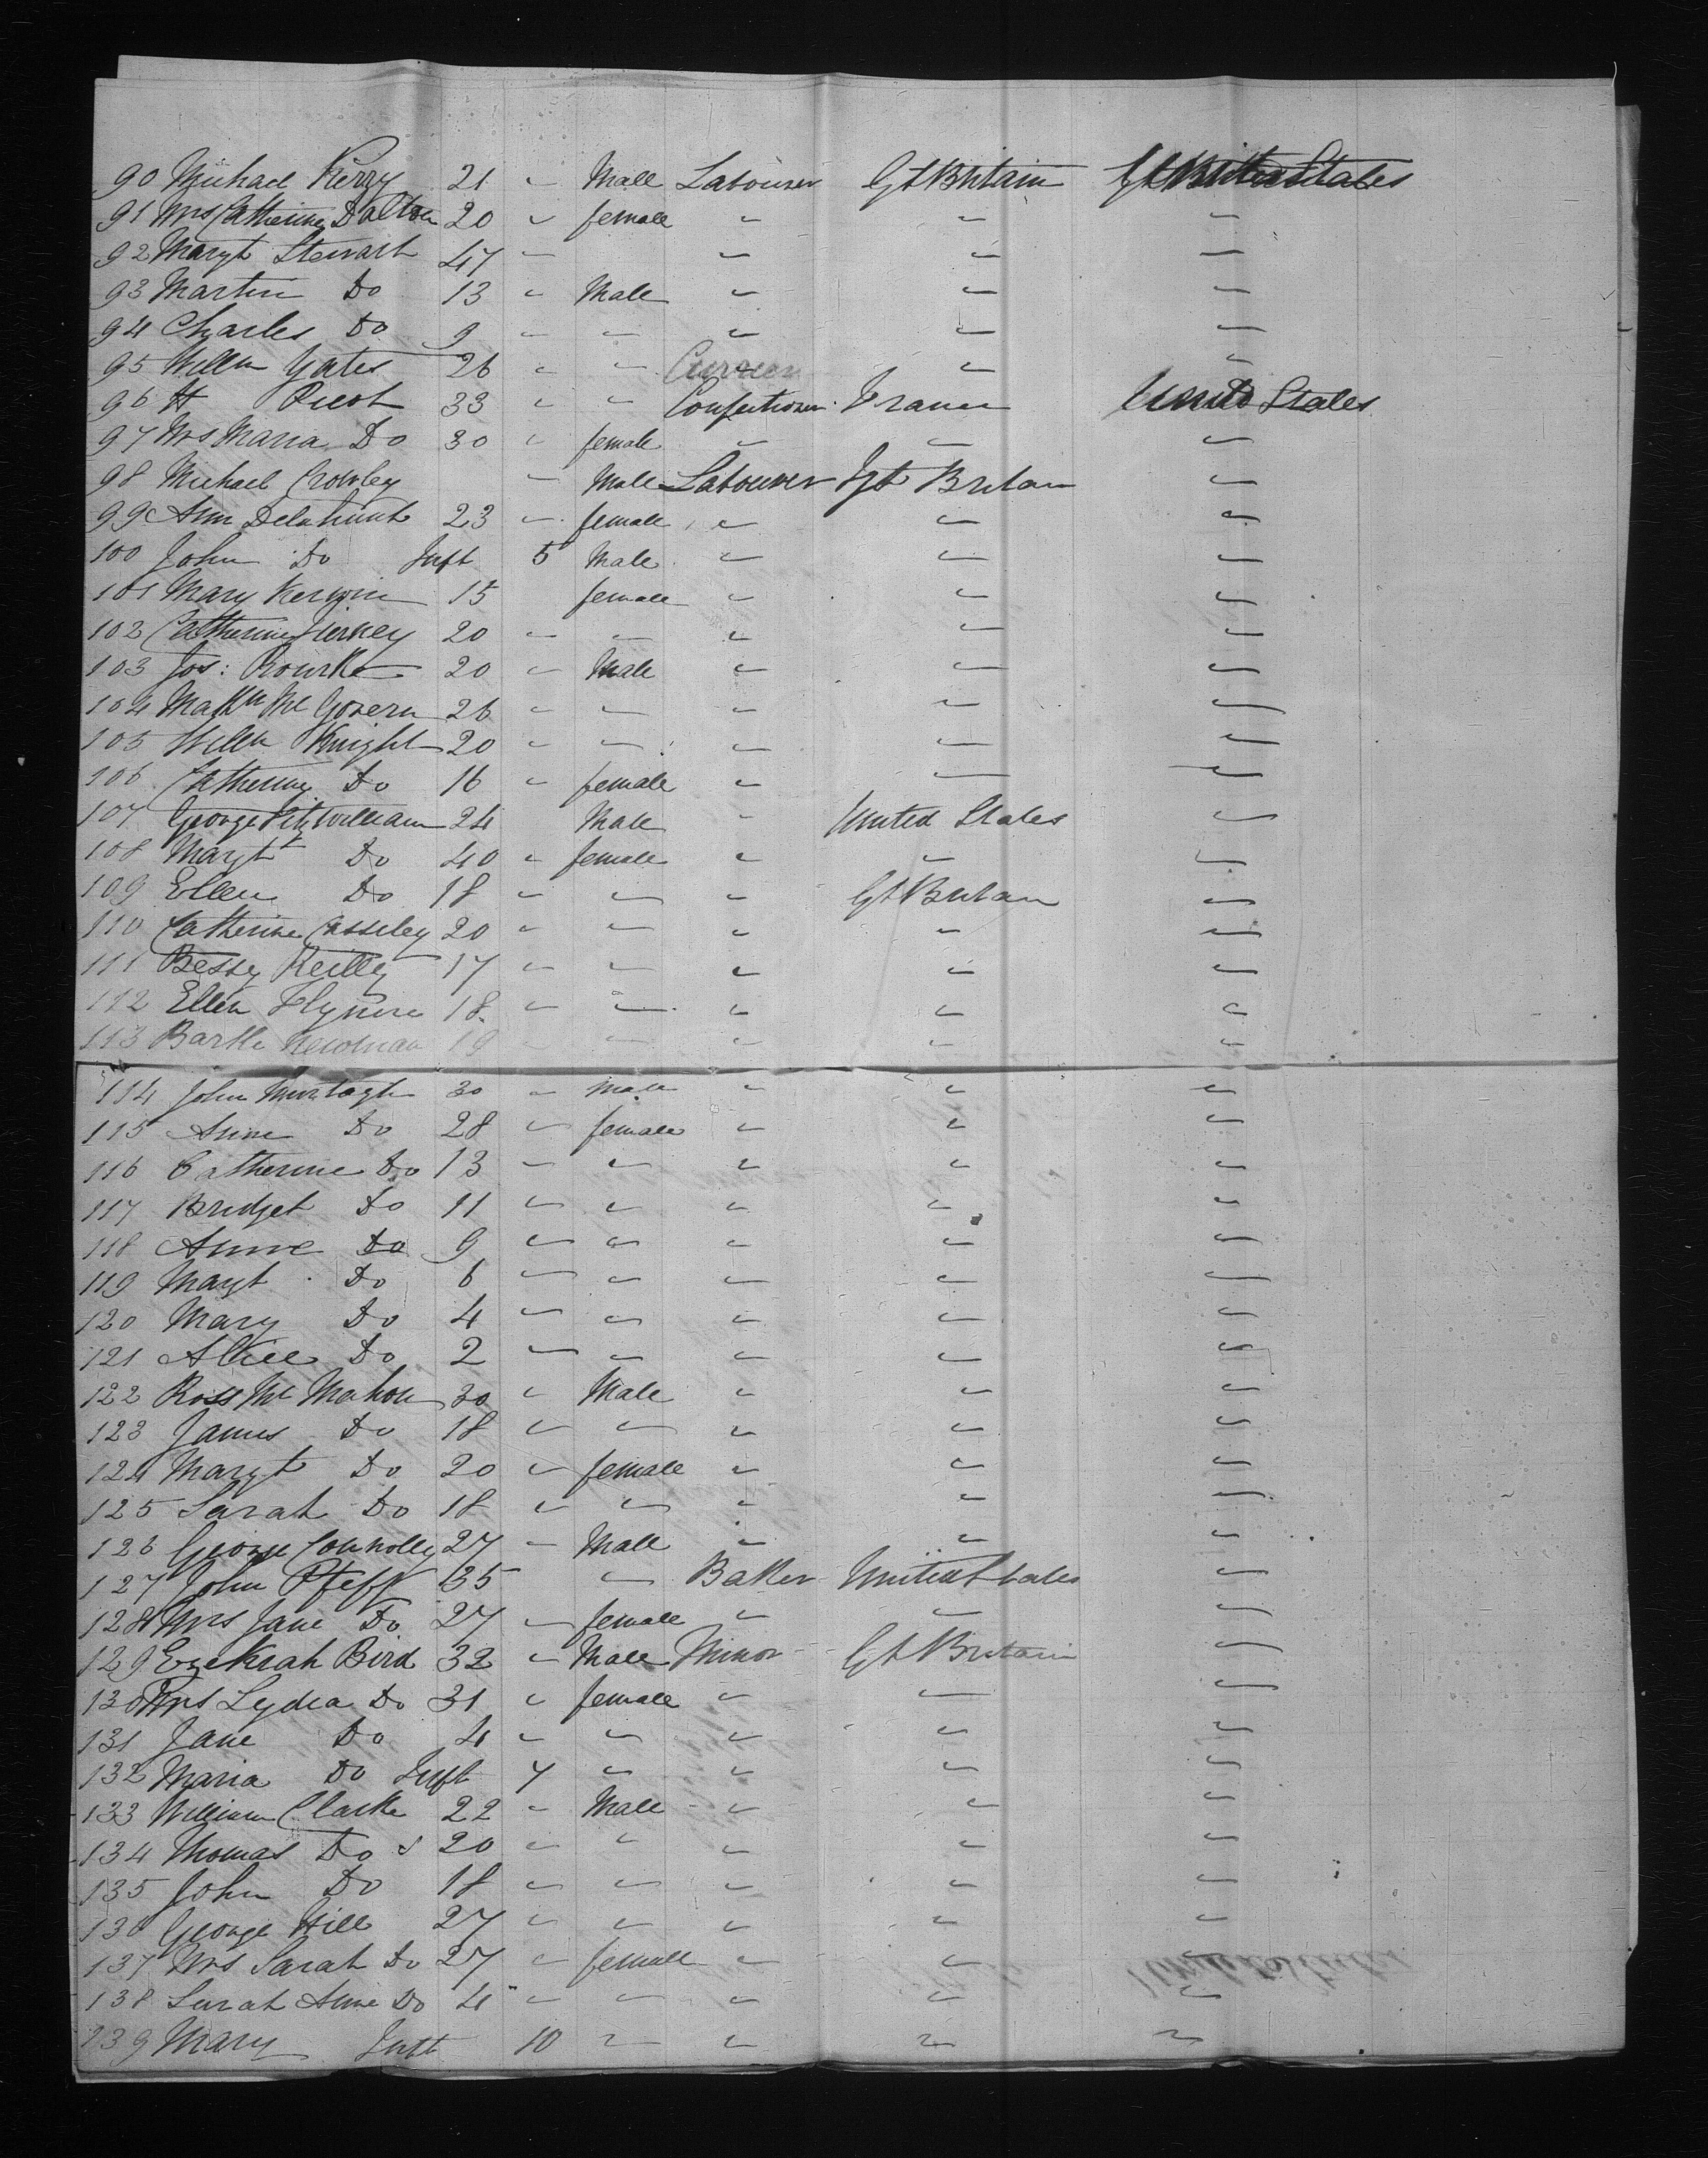 90 Michael Kerry 21 " Male Labourer Gt Britain United States
91 Mrs Catherine Dalton 20 " female " " "
92 Margt Stewart 47 " " " "
93 Martin Do 13 " Male " " "
94 Charles Do 9 " " " " "
95 Willm Yates 26 " " Currier " "
96 H 33 " " Confectioner France United States
97 Mrs Maria Do 30 " female " " "
98 Michael Crowley " Male Labourer Gt Britain "
99 Ann Delahunt 23 " female " " "
100 John Do Inft 5 Male " " "
101 Mary Kerwin 15 female " " "
102 Catherine 20 " " " " "
103 Jos: Rourke 20 " Male " " "
104 Mc Govern 26 " " " " "
105 Willm Knight 20 " " " " "
106 Catherine Do 16 " female " " "
107 George Fitzwilliam 24 Male " United States "
108 Margt Do 40 " female " " "
109 Ellen Do 18 " " " Gt Britain "
110 Catherine Casseley 20 " " " " "
111 Bessy Reilly 17 " " " " "
112 Ellen Flynn 18 " " " " "
113 Newman 19 " " " " "
114 John Murtagh 30 " male " " "
115 Anne Do 28 " female " " "
116 Catherine Do 13 " " " " "
117 Bridget Do 11 " " " " "
118 Anne Do 9 " " " " "
119 Margt Do 6 " " " " "
120 Mary Do 4 " " " " "
121 Alice Do 2 " " " " "
122 Ross Mc Mahon 30 " Male " " "
123 James Do 18 " " " " "
124 Margt Do 20 " female " " "
125 Sarah Do 18 " " " " "
126 George Connolly 27 " Male " " "
127 John Pfeff 35 " Baker United States "
128 Mrs Jane Do 27 " female " " "
129 Ezekiah Bird 32 " Male Minor Gt Britain "
130 Mrs Lydia Do 31 " female " " "
131 Jane Do 4 " " " " "
132 Maria Do Inft 7 " " " "
133 William Clarke 22 " Male " " "
134 Thomas Do 20 " " " " "
135 John Do 18 " " " " "
136 George Hill 27 " " " " "
137 Mrs Sarah Do 27 " female " " "
138 Sarah Anne Do 4 " " " " "
139 Mary Inft 10 " " " "